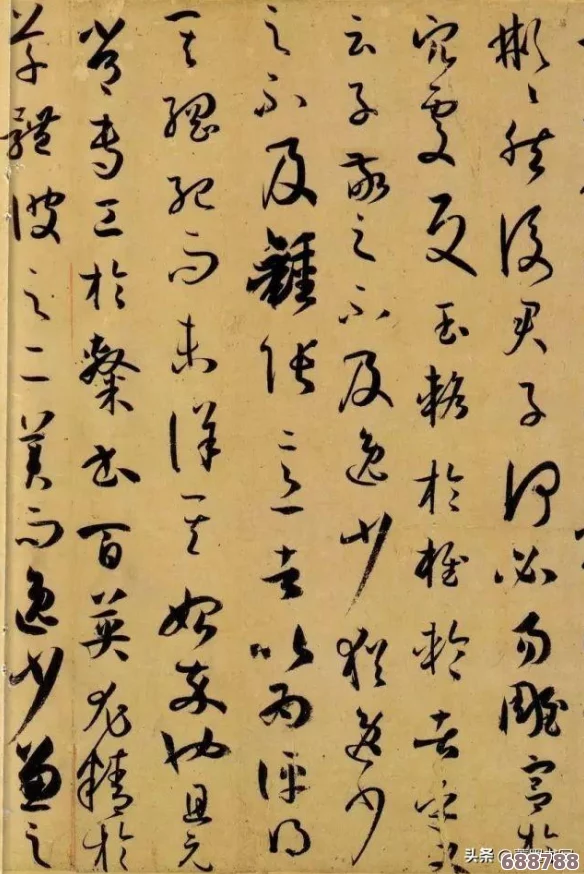 彬彬然後君子何必易雕宮於
穴處反玉輅於椎輪者乎又
云子敬之不及逸少猶逸少
之不及鍾張意者以為評得
其綱紀而未詳其始卒也且元
常專工於隸書百英尤精於
草體彼之二美而逸少兼之
头条
688788